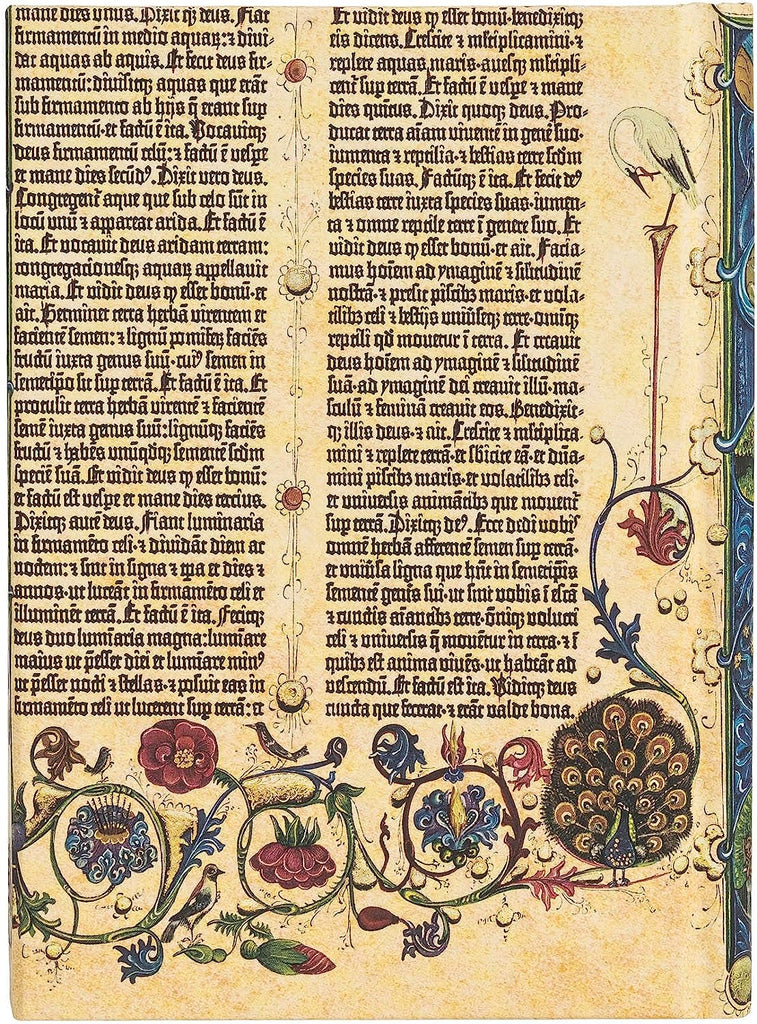 mane dies unus. Dixit qꝫ deus. Fiat
firmamentū in medio aquaꝝ: ⁊ divi-
dat aquas ab aquis. Et fecit deus fir-
mamentū: divisitqꝫ aquas que erāt
sub firmamento ab hijs q̄ erant suꝑ
firmamentū. et factū ē ita. Vocavitqꝫ
deus firmamentū celū: ⁊ factū ē vespe
et mane dies secūdꝰ. Dixit vero deus.
Congregent̄ aque que sub celo sūt in
locū unū ⁊ appareat arida. Et factū ē
ita. Et vocavit deus aridam terram:
congregacionesqꝫ aquaꝝ appellavit
maria. Et vidit deus ꝙ esset bonū. et
ait. Germinet terra herbā virentem et
facientē semen: ⁊ lignū pomifeꝝ faciēs
fructū iuxta genus suū. cuiꝰ semen in
semetip̄o sit suꝑ terrā. Et factū ē ita. Et
protulit terra herbā virentē ⁊ facientē
semē iuxta genus suū: lignūqꝫ faciēs
fructū ⁊ habēs unūqdqꝫ sementē scdm
speciē suā. Et vidit deus ꝙ esset bonū:
et factū est vespe et mane dies tercius.
Dixitqꝫ autē deus. Fiant luminaria
in firmamēto celi. et dividāt diem ac
noctem: ⁊ sint in signa ⁊ tp̄a et dies ⁊
annos. ut luceāt in firmamēto celi et
illuminēt terrā. Et factū ē ita. Fecitqꝫ
deus duo lumīaria magna: lumīare
maius ut p̄esset diei et lumīare minꝰ
ut p̄esset nocti ⁊ stellas. ⁊ posuit eas in
firmamēto celi ut lucerent suꝑ terrā: et
Et vidit deus ꝙ esset bonū. benedixitqꝫ
eis dicens. Crescite ⁊ mĺtiplicamini. ⁊
replete aquas maris. avesqꝫ mĺtipli-
cent̄ suꝑ terrā. Et factū ē vespe ⁊ mane
dies quītus. Dixit quoqꝫ deus. Pro-
ducat terra aīam viventē in genē suo.
iumenta ⁊ reptilia. ⁊ bestias terre scdm
species suas. Factūqꝫ ē ita. Et fecit deꝰ
bestias terre iuxta species suas. iumen-
ta ⁊ omne reptile terre ī genere suo. Et
vidit deus ꝙ esset bonū. et ait. Facia-
mus hoīem ad ymaginē ⁊ silitudinē
nostrā. ⁊ presit piscibꝫ maris. et vola-
tilibꝫ celi ⁊ bestijs univseqꝫ terre. omīqꝫ
reptili qd movetur ī terra. Et creavit
deus hoīem ad ymaginē ⁊ silitudinē
suā. ad ymaginē dei creavit illū. ma-
sculū ⁊ feminā creavit eos. Benedixit-
qꝫ illis deus. ⁊ ait. Crescite ⁊ mĺtiplica-
mini ⁊ replete terrā. et sbicite eā. et dña-
mini piscibꝫ maris. et volatilibꝫ celi.
et universis animātibꝫ que moventˀ
suꝑ terrā. Dixitqꝫ deꝰ. Ecce dedi vobꝭ
omnē herbā afferentē semen suꝑ terrā.
et univsa ligna que hñt in semetipīs
sementē genĭs sui. ut sint vobis ī escā
⁊ cunctis aīantibꝫ terre. oīqꝫ volucri
celi ⁊ universis q̄ moventur in terra. ⁊ ī
quibꝫ est anima vivēs. ut habeāt ad
vescendū. Et factū est ita. Viditqꝫ deus
cuncta que fecerat. ⁊ erāt valde bona.